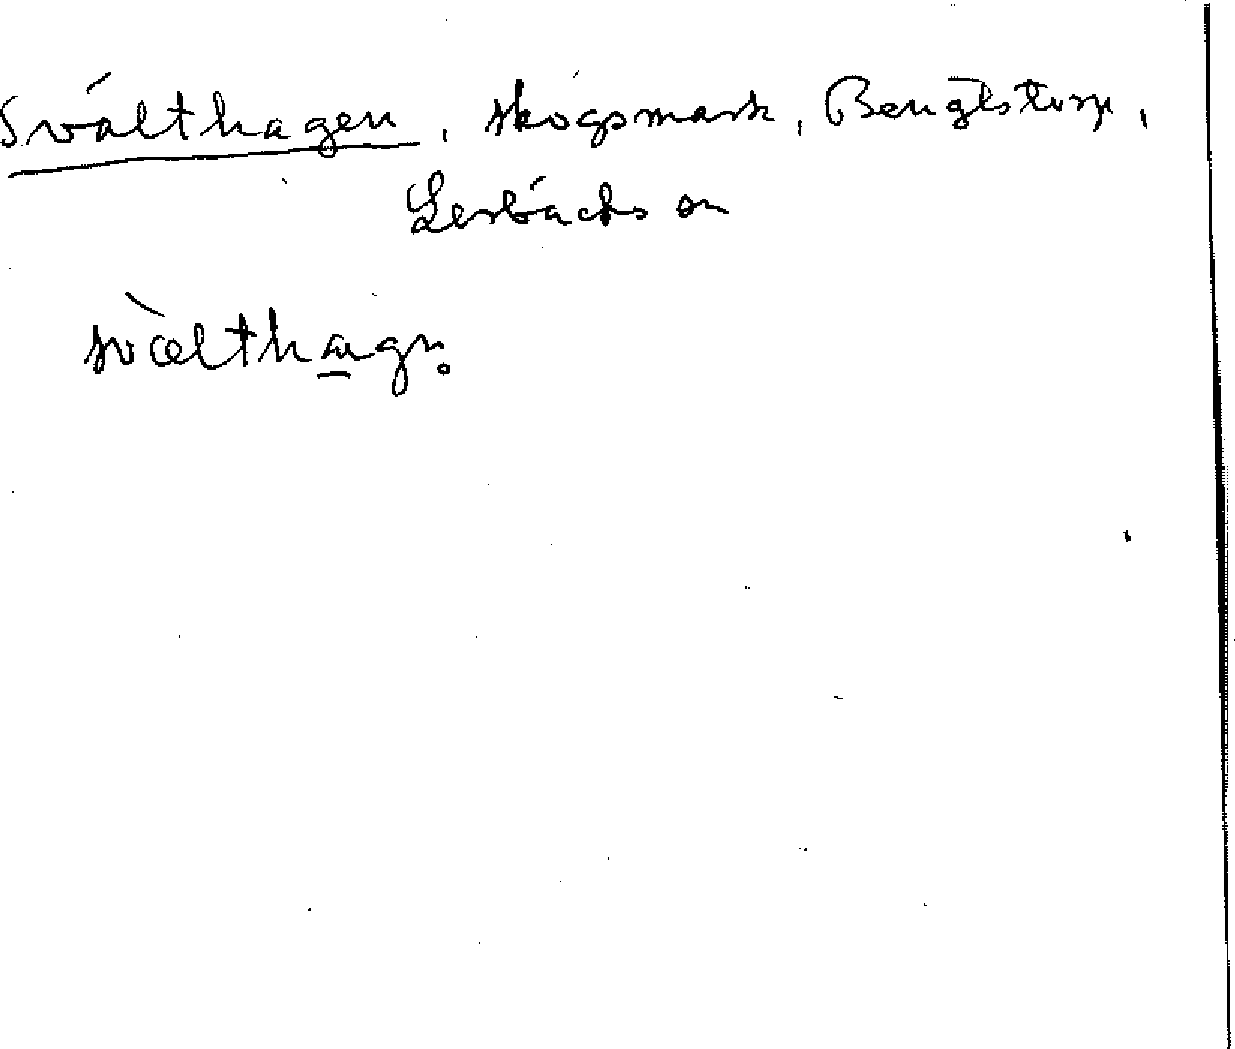 Svälthagen, skogsmark, Bengtstorp,
Lerbäcks sn
svæ̀lthagn̥